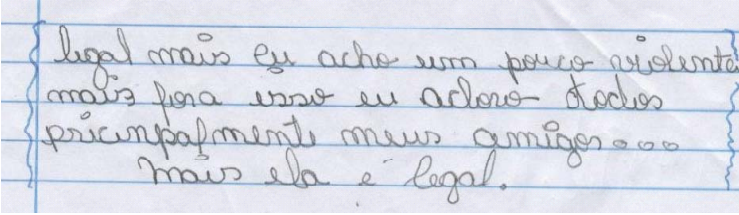 legal mais eu acho um pouco violenta
mais fora isso eu adoro todos
pricinpalmente meus amigos...
mais ela é legal.